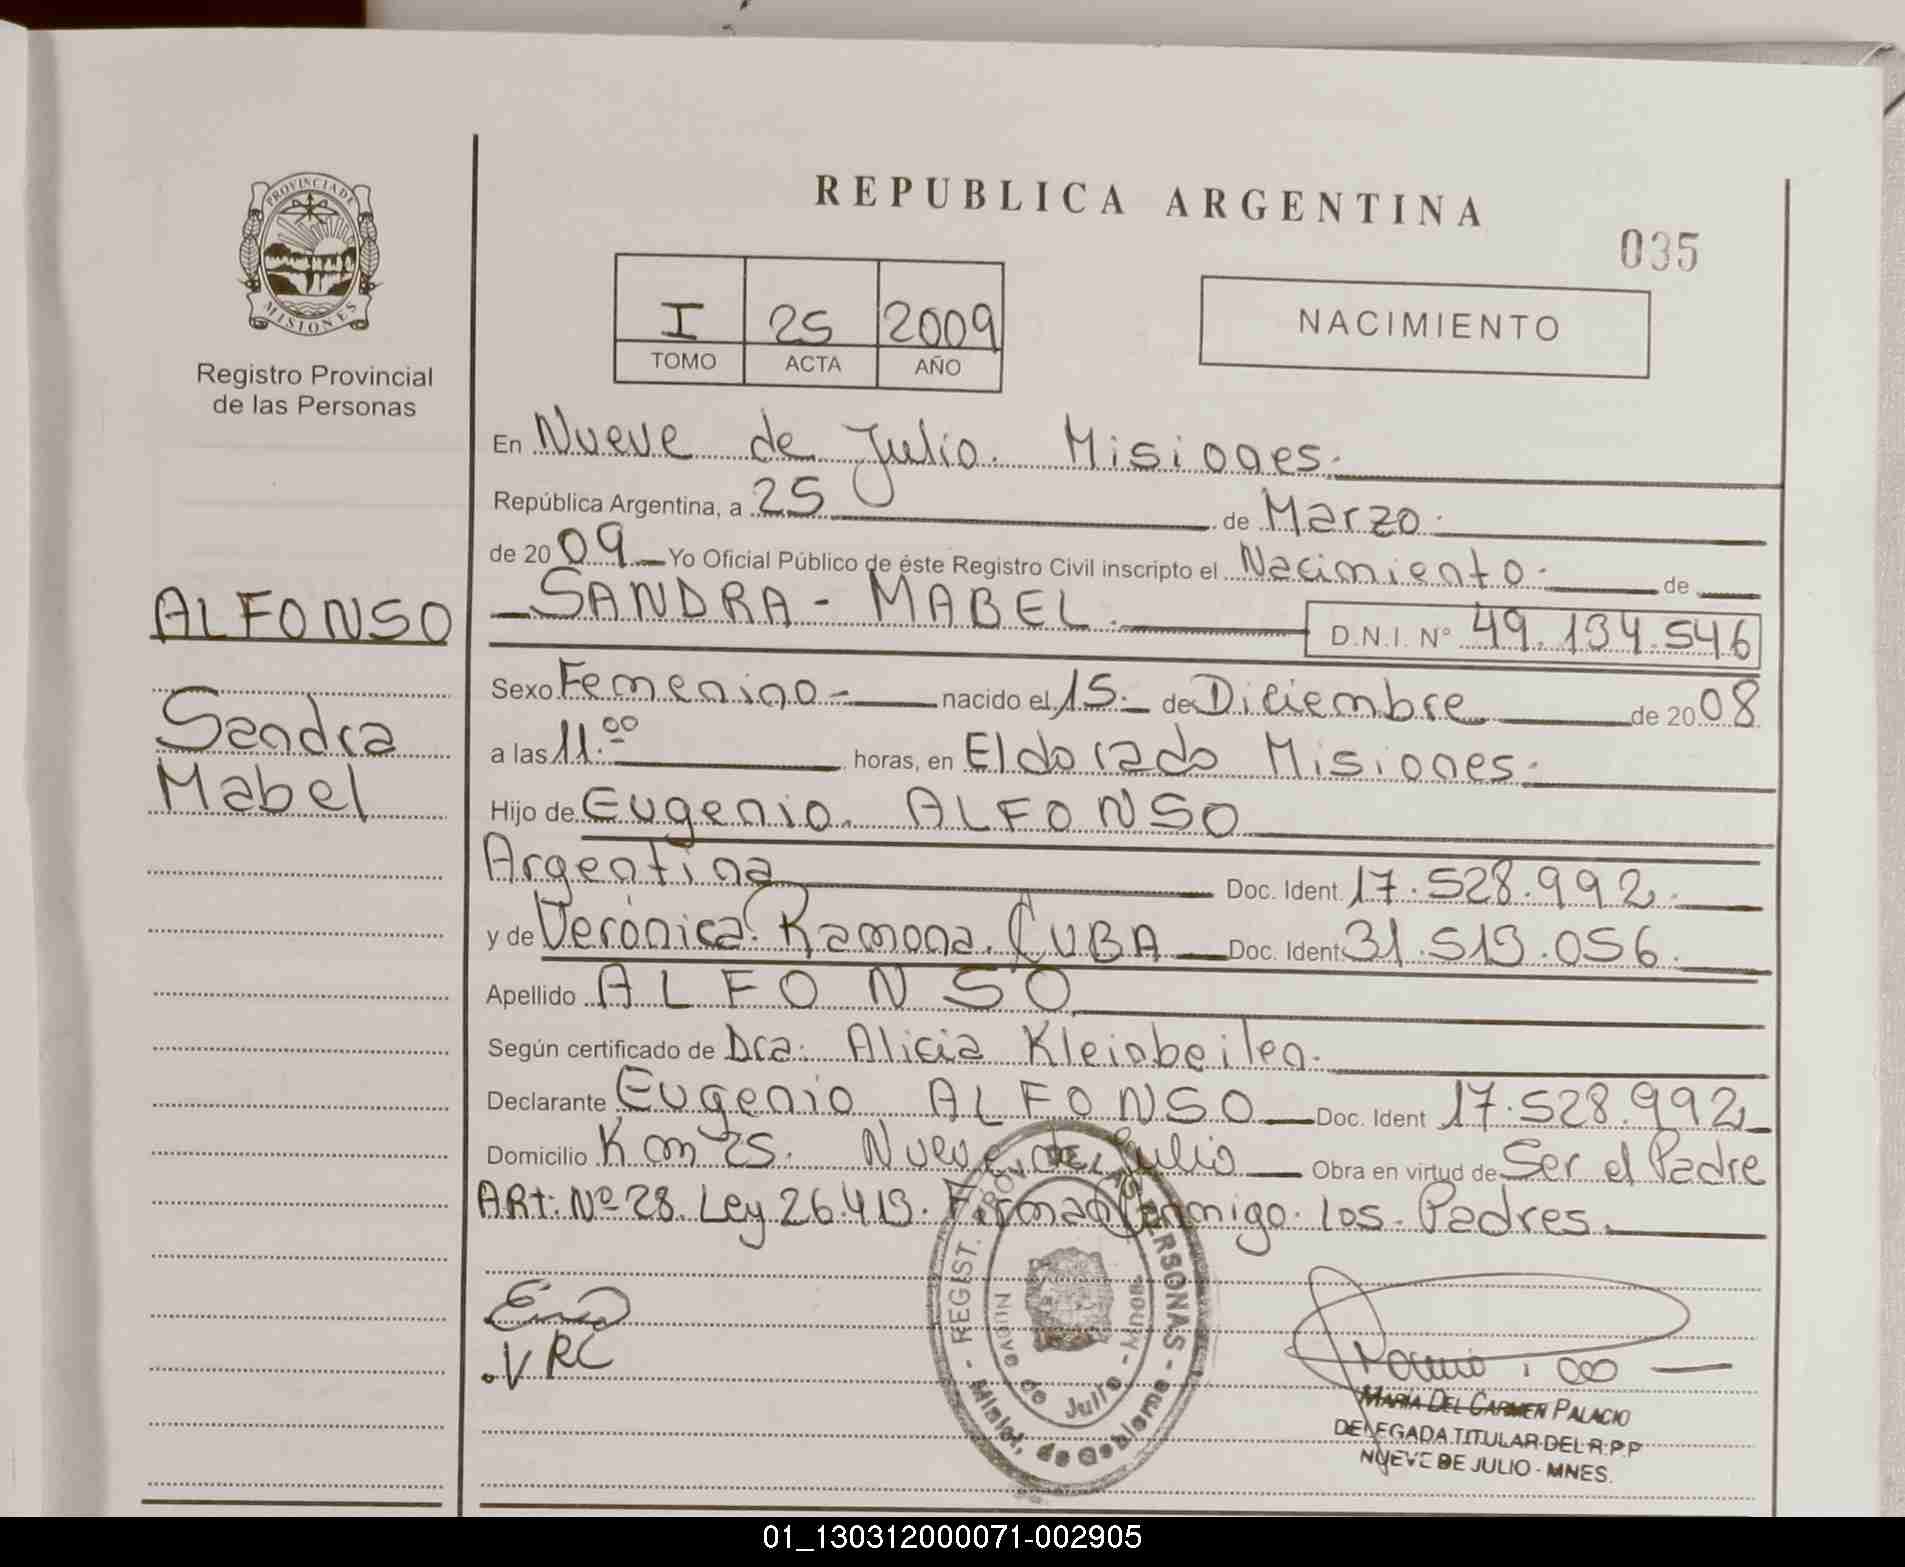 REPUBLICA ARGENTINA
035
PROVINCIA DE
MISIONES
Registro Provincial
de las Personas
I 25 2009
TOMO ACTA AÑO
NACIMIENTO
En Nueve de Julio. Misiones.
República Argentina, a 25 de Marzo.
de 2009 Yo Oficial Público de éste Registro Civil inscripto el Nacimiento. de
ALFONSO
SANDRA - MABEL. D.N.I. Nº 49.134.546
Sandra
Mabel
Sexo Femenino nacido el 15 de Diciembre de 2008
a las 11.00 horas, en Eldorado Misiones.
Hijo de Eugenio. ALFONSO
Argentina Doc. Ident. 17.528.992.
y de Verónica. Ramona. CUBA Doc. Ident 31.513.056.
Apellido ALFONSO
Según certificado de Dra. Alicia
Declarante Eugenio ALFONSO Doc. Ident 17.528.992
Domicilio Km 25. Nueve de Julio Obra en virtud de Ser el Padre
ARt: Nº 28. Ley 26.413. Firman Conmigo. los. Padres.
VRC
REGIST. PROV. DE LAS PERSONAS - Minist. de Gobierno
Nueve de Julio - Mnes.
MARIA DEL CARMEN PALACIO
DELEGADA TITULAR DEL R.P.P
NUEVE DE JULIO - MNES.
01_130312000071-002905